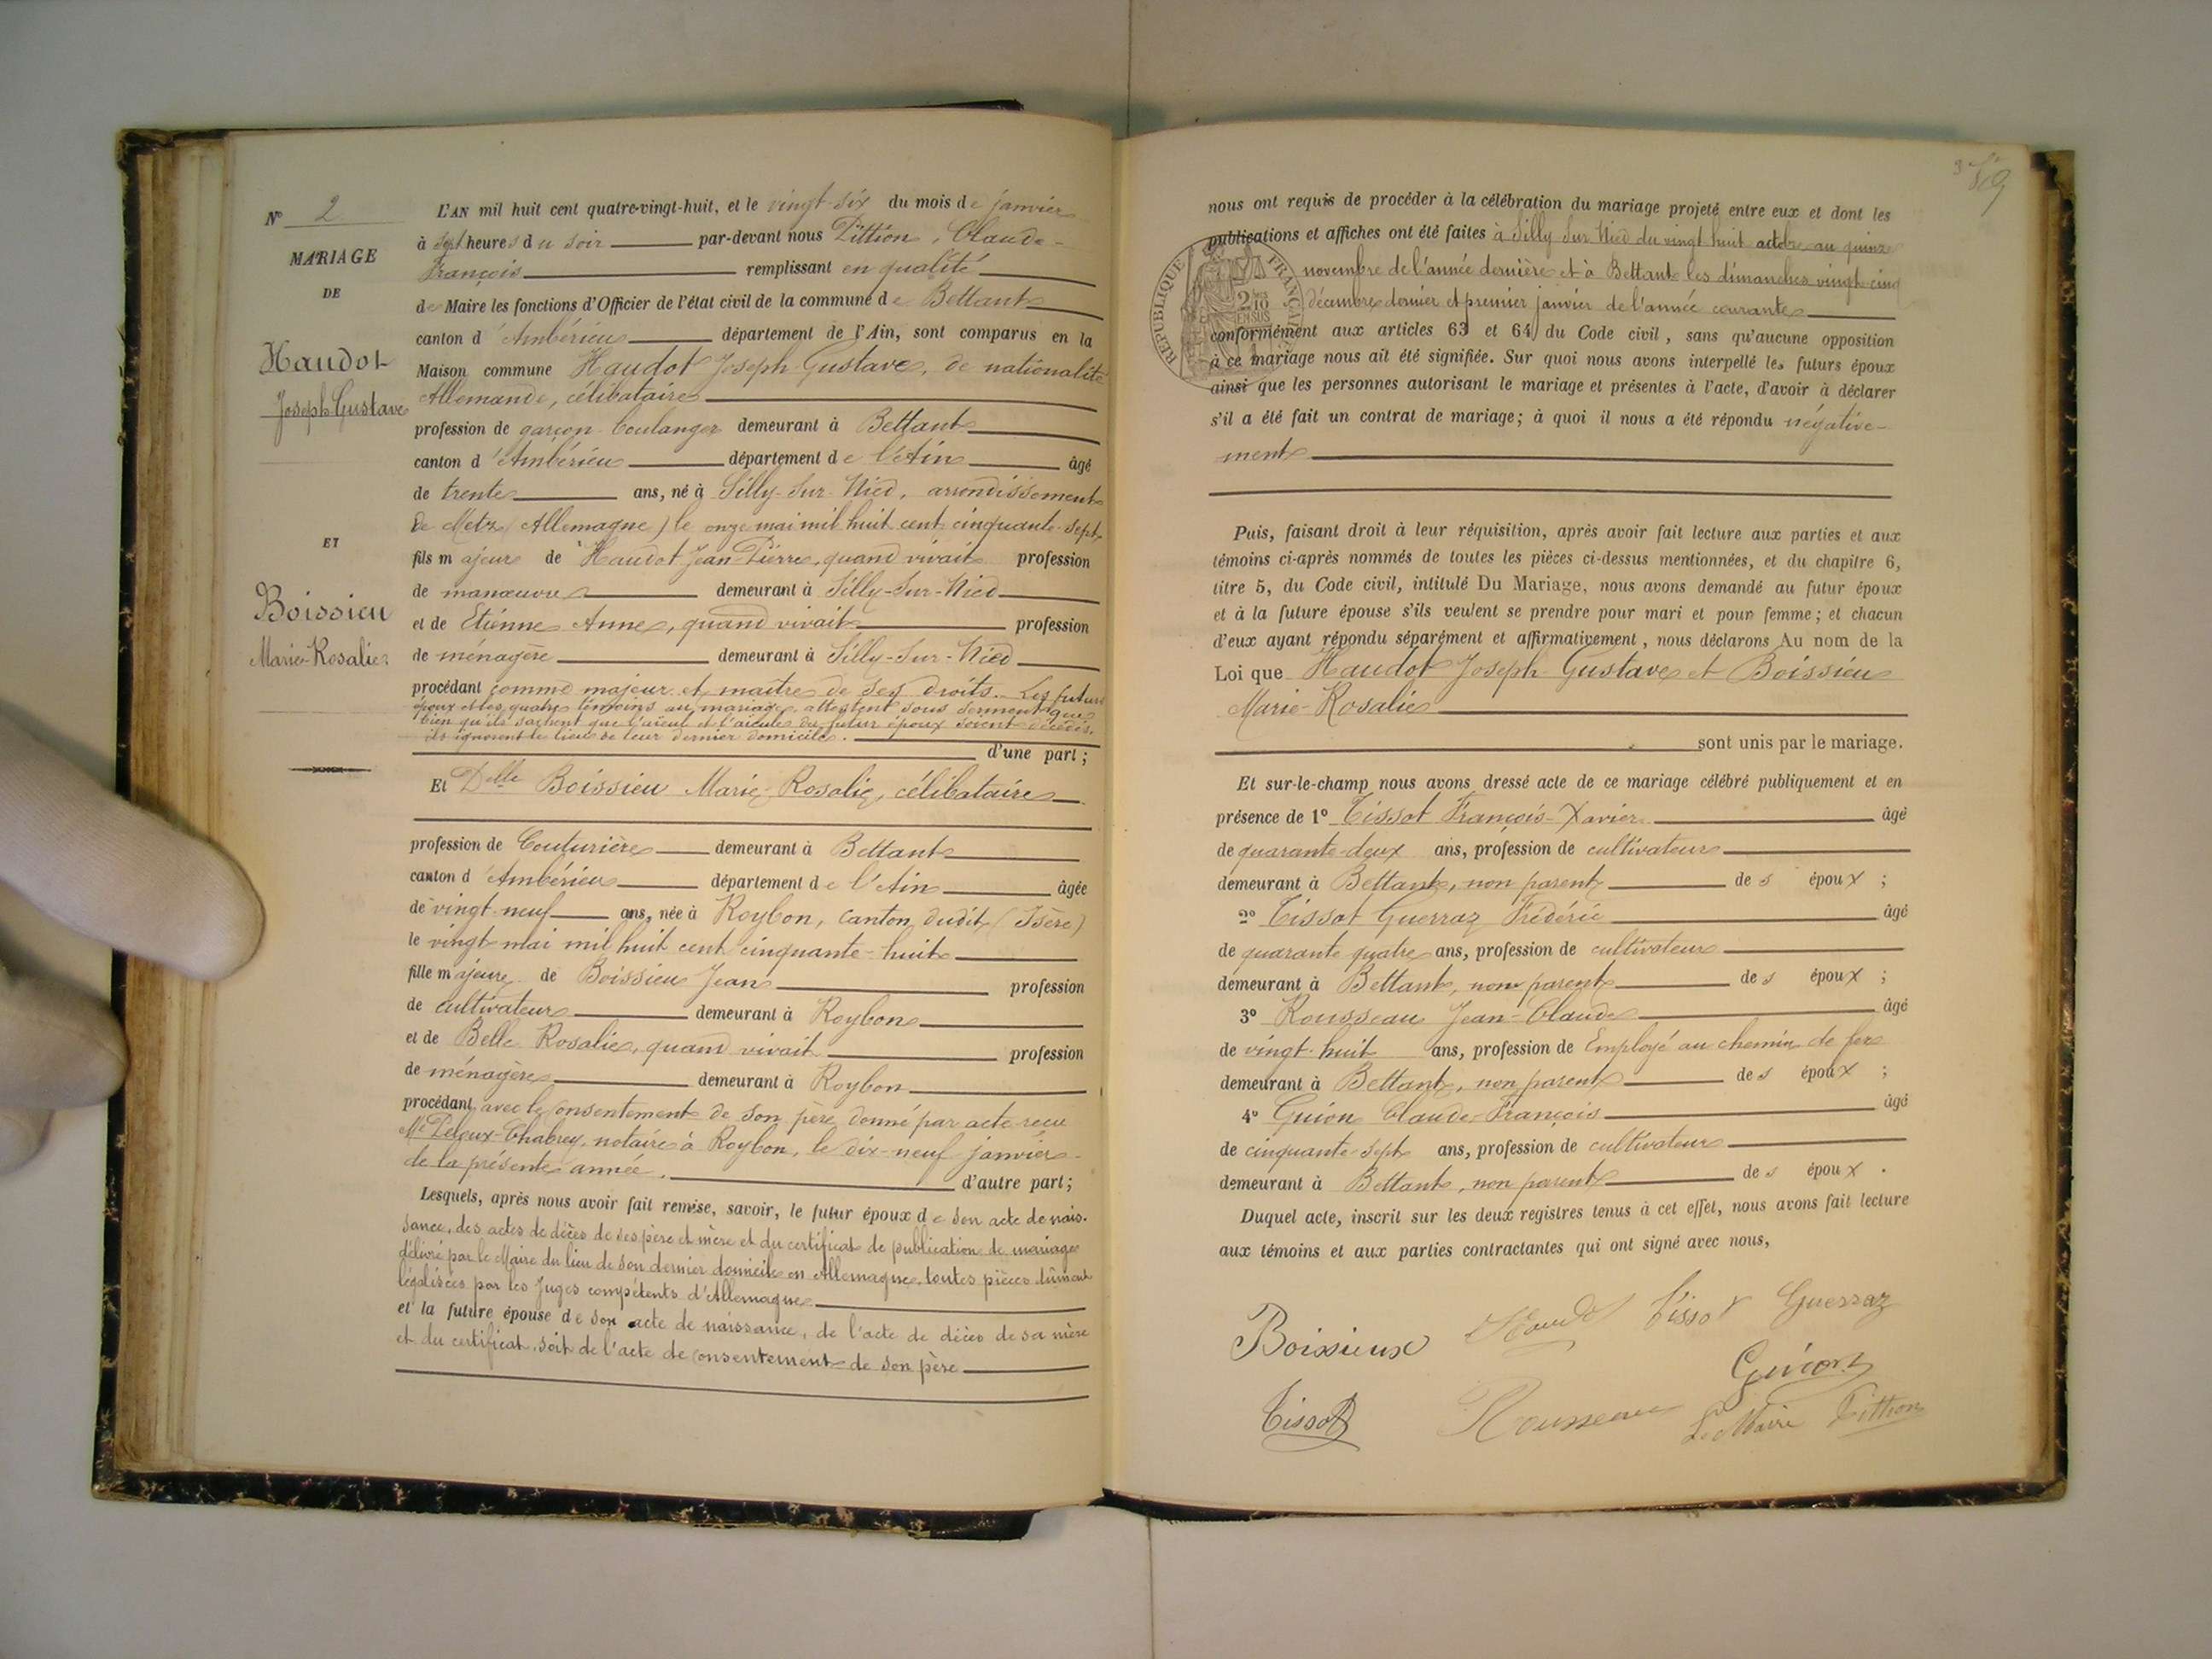 N° 2
MARIAGE
DE
Haudot
Joseph Gustave
ET
Boissieu
Marie-Rosalie
L'AN mil huit cent quatre-vingt-huit, et le vingt-six du mois de janvier
à sept heures du soir par-devant nous Pittion, Claude-
François remplissant en qualité
de Maire les fonctions d'Officier de l'état civil de la commune de Bettant
canton d'Ambérieu département de l'Ain, sont comparus en la
Maison commune Haudot Joseph Gustave, de nationalité
Allemande, célibataire
profession de garçon boulanger demeurant à Bettant
canton d'Ambérieu département de l'Ain âgé
de trente ans, né à Silly-Sur-Nied, arrondissement
de Metz (Allemagne) le onze mai mil huit cent cinquante-sept,
fils majeur de Haudot Jean-Pierre, quand vivait profession
de manœuvre demeurant à Silly-Sur-Nied
et de Etienne Anne, quand vivait profession
de ménagère demeurant à Silly-Sur-Nied
procédant comme majeur et maître de ses droits. Les futurs
époux et les quatre témoins au mariage attestent sous serment que
bien qu'ils sachent que l'aïeul et l'aïeule du futur époux soient décédés,
ils ignorent le lieu de leur dernier domicile.
d'une part ;
Et Delle Boissieu Marie-Rosalie, célibataire
profession de Couturière demeurant à Bettant
canton d'Ambérieu département de l'Ain âgée
de vingt-neuf ans, née à Roybon, canton dudit (Isère)
le vingt mai mil huit cent cinquante-huit
fille majeure de Boissieu Jean profession
de cultivateur demeurant à Roybon
et de Belle Rosalie, quand vivait profession
de ménagère demeurant à Roybon
procédant avec le consentement de son père, donné par acte reçu
Me Peloux-Chabrey, notaire à Roybon, le dix-neuf janvier
de la présente année. d'autre part ;
Lesquels, après nous avoir fait remise, savoir, le futur époux de son acte de nais-
sance, des actes de décès de ses père et mère et du certificat de publication de mariage
délivré par le Maire du lieu de son dernier domicile en Allemagne, toutes pièces dûment
légalisées par les Juges compétents d'Allemagne
et la future épouse de son acte de naissance, de l'acte de décès de sa mère
et du certificat, soit de l'acte de consentement de son père
nous ont requis de procéder à la célébration du mariage projeté entre eux et dont les
publications et affiches ont été faites à Silly Sur Nied du vingt huit octobre au quinze
novembre de l'année dernière et à Bettant les dimanches vingt-cinq
décembre dernier et premier janvier de l'année courante
RÉPUBLIQUE FRANÇAISE
conformément aux articles 63 et 64 du Code civil, sans qu'aucune opposition
à ce mariage nous ait été signifiée. Sur quoi nous avons interpellé les futurs époux
ainsi que les personnes autorisant le mariage et présentes à l'acte, d'avoir à déclarer
s'il a été fait un contrat de mariage ; à quoi il nous a été répondu négative-
ment
Puis, faisant droit à leur réquisition, après avoir fait lecture aux parties et aux
témoins ci-après nommés de toutes les pièces ci-dessus mentionnées, et du chapitre 6,
titre 5, du Code civil, intitulé Du Mariage, nous avons demandé au futur époux
et à la future épouse s'ils veulent se prendre pour mari et pour femme ; et chacun
d'eux ayant répondu séparément et affirmativement, nous déclarons Au nom de la
Loi que Haudot Joseph Gustave et Boissieu
Marie-Rosalie
sont unis par le mariage.
Et sur-le-champ nous avons dressé acte de ce mariage célébré publiquement et en
présence de 1° Tissot François-Xavier âgé
de quarante-deux ans, profession de cultivateur
demeurant à Bettant, non parent des époux ;
2° Tissot Guerraz Frédéric âgé
de quarante quatre ans, profession de cultivateur
demeurant à Bettant, non parent des époux ;
3° Rousseau Jean-Claude âgé
de vingt-huit ans, profession de Employé au chemin de fer
demeurant à Bettant, non parent des époux ;
4° Guion Claude-François âgé
de cinquante-sept ans, profession de cultivateur
demeurant à Bettant, non parent des époux.
Duquel acte, inscrit sur les deux registres tenus à cet effet, nous avons fait lecture
aux témoins et aux parties contractantes qui ont signé avec nous,
Boissieux Haudot Tissot Guerraz
Guion
Tissot Rousseau Le Maire Pittion